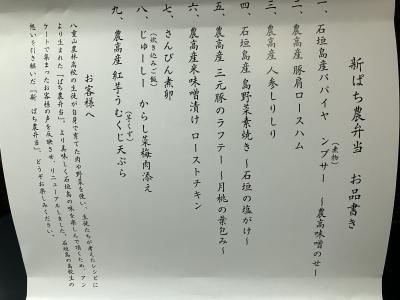 新ぱち農弁当　お品書き
一、石垣島産パパイヤ　ンブサー（煮物）　～農高味噌のせ～
二、農高産 豚肩ロースハム
三、農高産 人参しりしり
四、石垣島産 島野菜素焼き ～石垣の塩がけ～
五、農高産 三元豚のラフテー ～月桃の葉包み～
六、農高産米味噌漬け ローストチキン
七、さんぴん煮卵
八、じゅーしー（炊き込みご飯）　からし菜梅肉添え
九、農高産 紅芋うむくじ天ぷら（芋くず）
お客様へ
八重山農林高校の生徒が自身で育てた肉や野菜を使い、生徒たちが考えたレシピに
より生まれた「ぱち農弁当」。より美味しく石垣島の味を楽しんで頂くため、アン
ケートで集まったお客様の声を反映させ、リニューアルしました。石垣島の高校生の
想いを引き継いだ「新 ぱち農弁当」、どうぞお楽しみください。